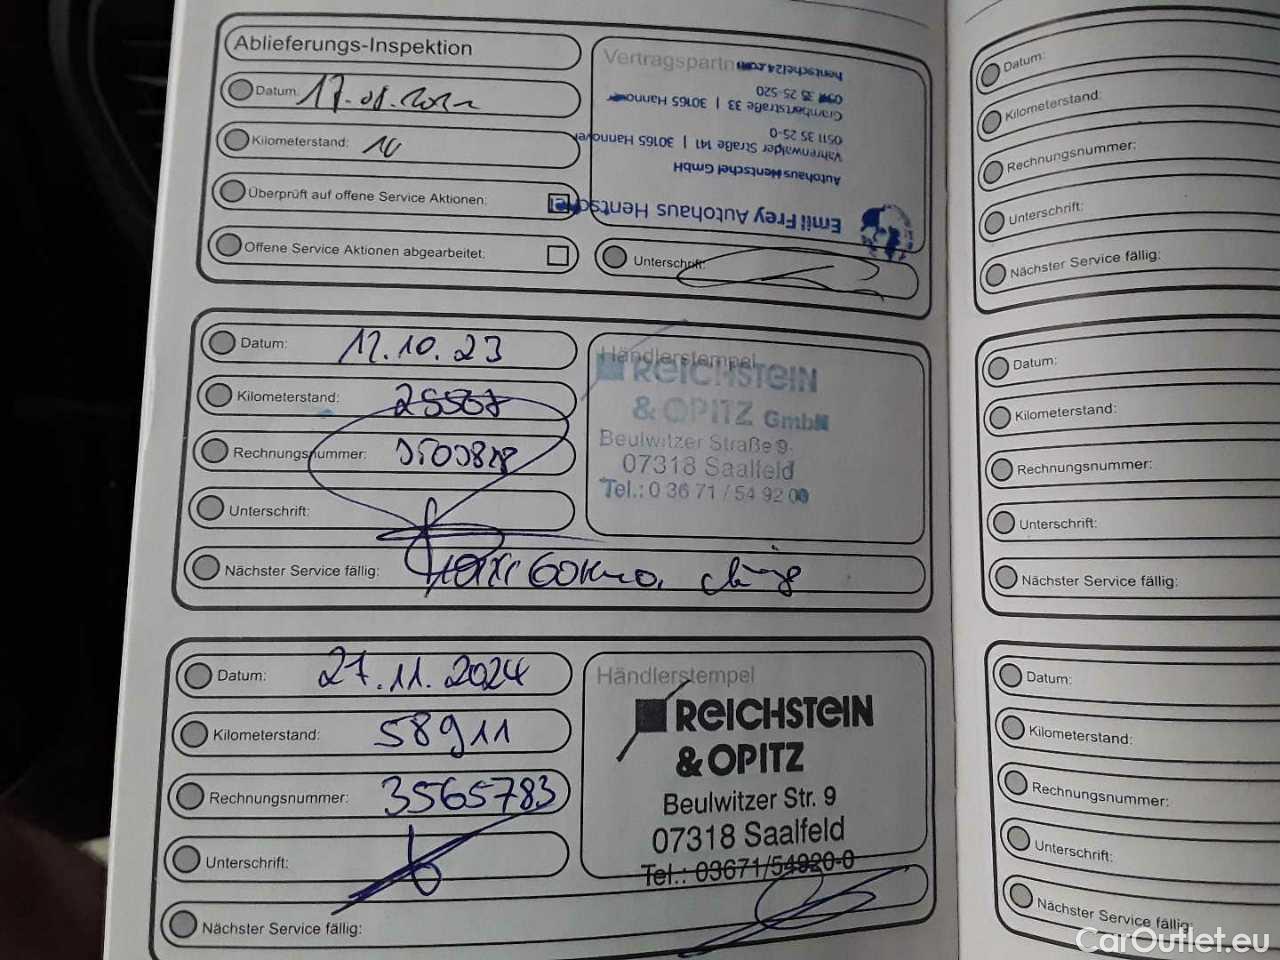 Ablieferungs-Inspektion
Datum:
Kilometerstand: 10
Überprüft auf offene Service Aktionen:
Offene Service Aktionen abgearbeitet:
Vertragspartn
hentschel24.com
35 25-520
Grambartstraße 33 | 30165 Hannover
0511 35 25-0
Vahrenwalder Straße 141 | 30165 Hannover
Autohaus Hentschel GmbH
Emil Frey Autohaus Hentschel
Unterschrift:
Datum: 12.10.23
Kilometerstand:
Rechnungsnummer:
Unterschrift:
Nächster Service fällig: 60
Händlerstempel
REICHSTEIN
& OPITZ GmbH
Beulwitzer Straße 9
07318 Saalfeld
Tel.: 0 36 71 / 54 92 00
Datum: 27.11.2024
Kilometerstand: 58911
Rechnungsnummer: 3565783
Unterschrift:
Nächster Service fällig:
Händlerstempel
REICHSTEIN
& OPITZ
Beulwitzer Str. 9
07318 Saalfeld
Tel.: 03671/54920-0
Datum:
Kilometerstand:
Rechnungsnummer:
Unterschrift:
Nächster Service fällig:
Datum:
Kilometerstand:
Rechnungsnummer:
Unterschrift:
Nächster Service fällig:
Datum:
Kilometerstand:
Rechnungsnummer:
Unterschrift:
Nächster Service fällig:
CarOutlet.eu